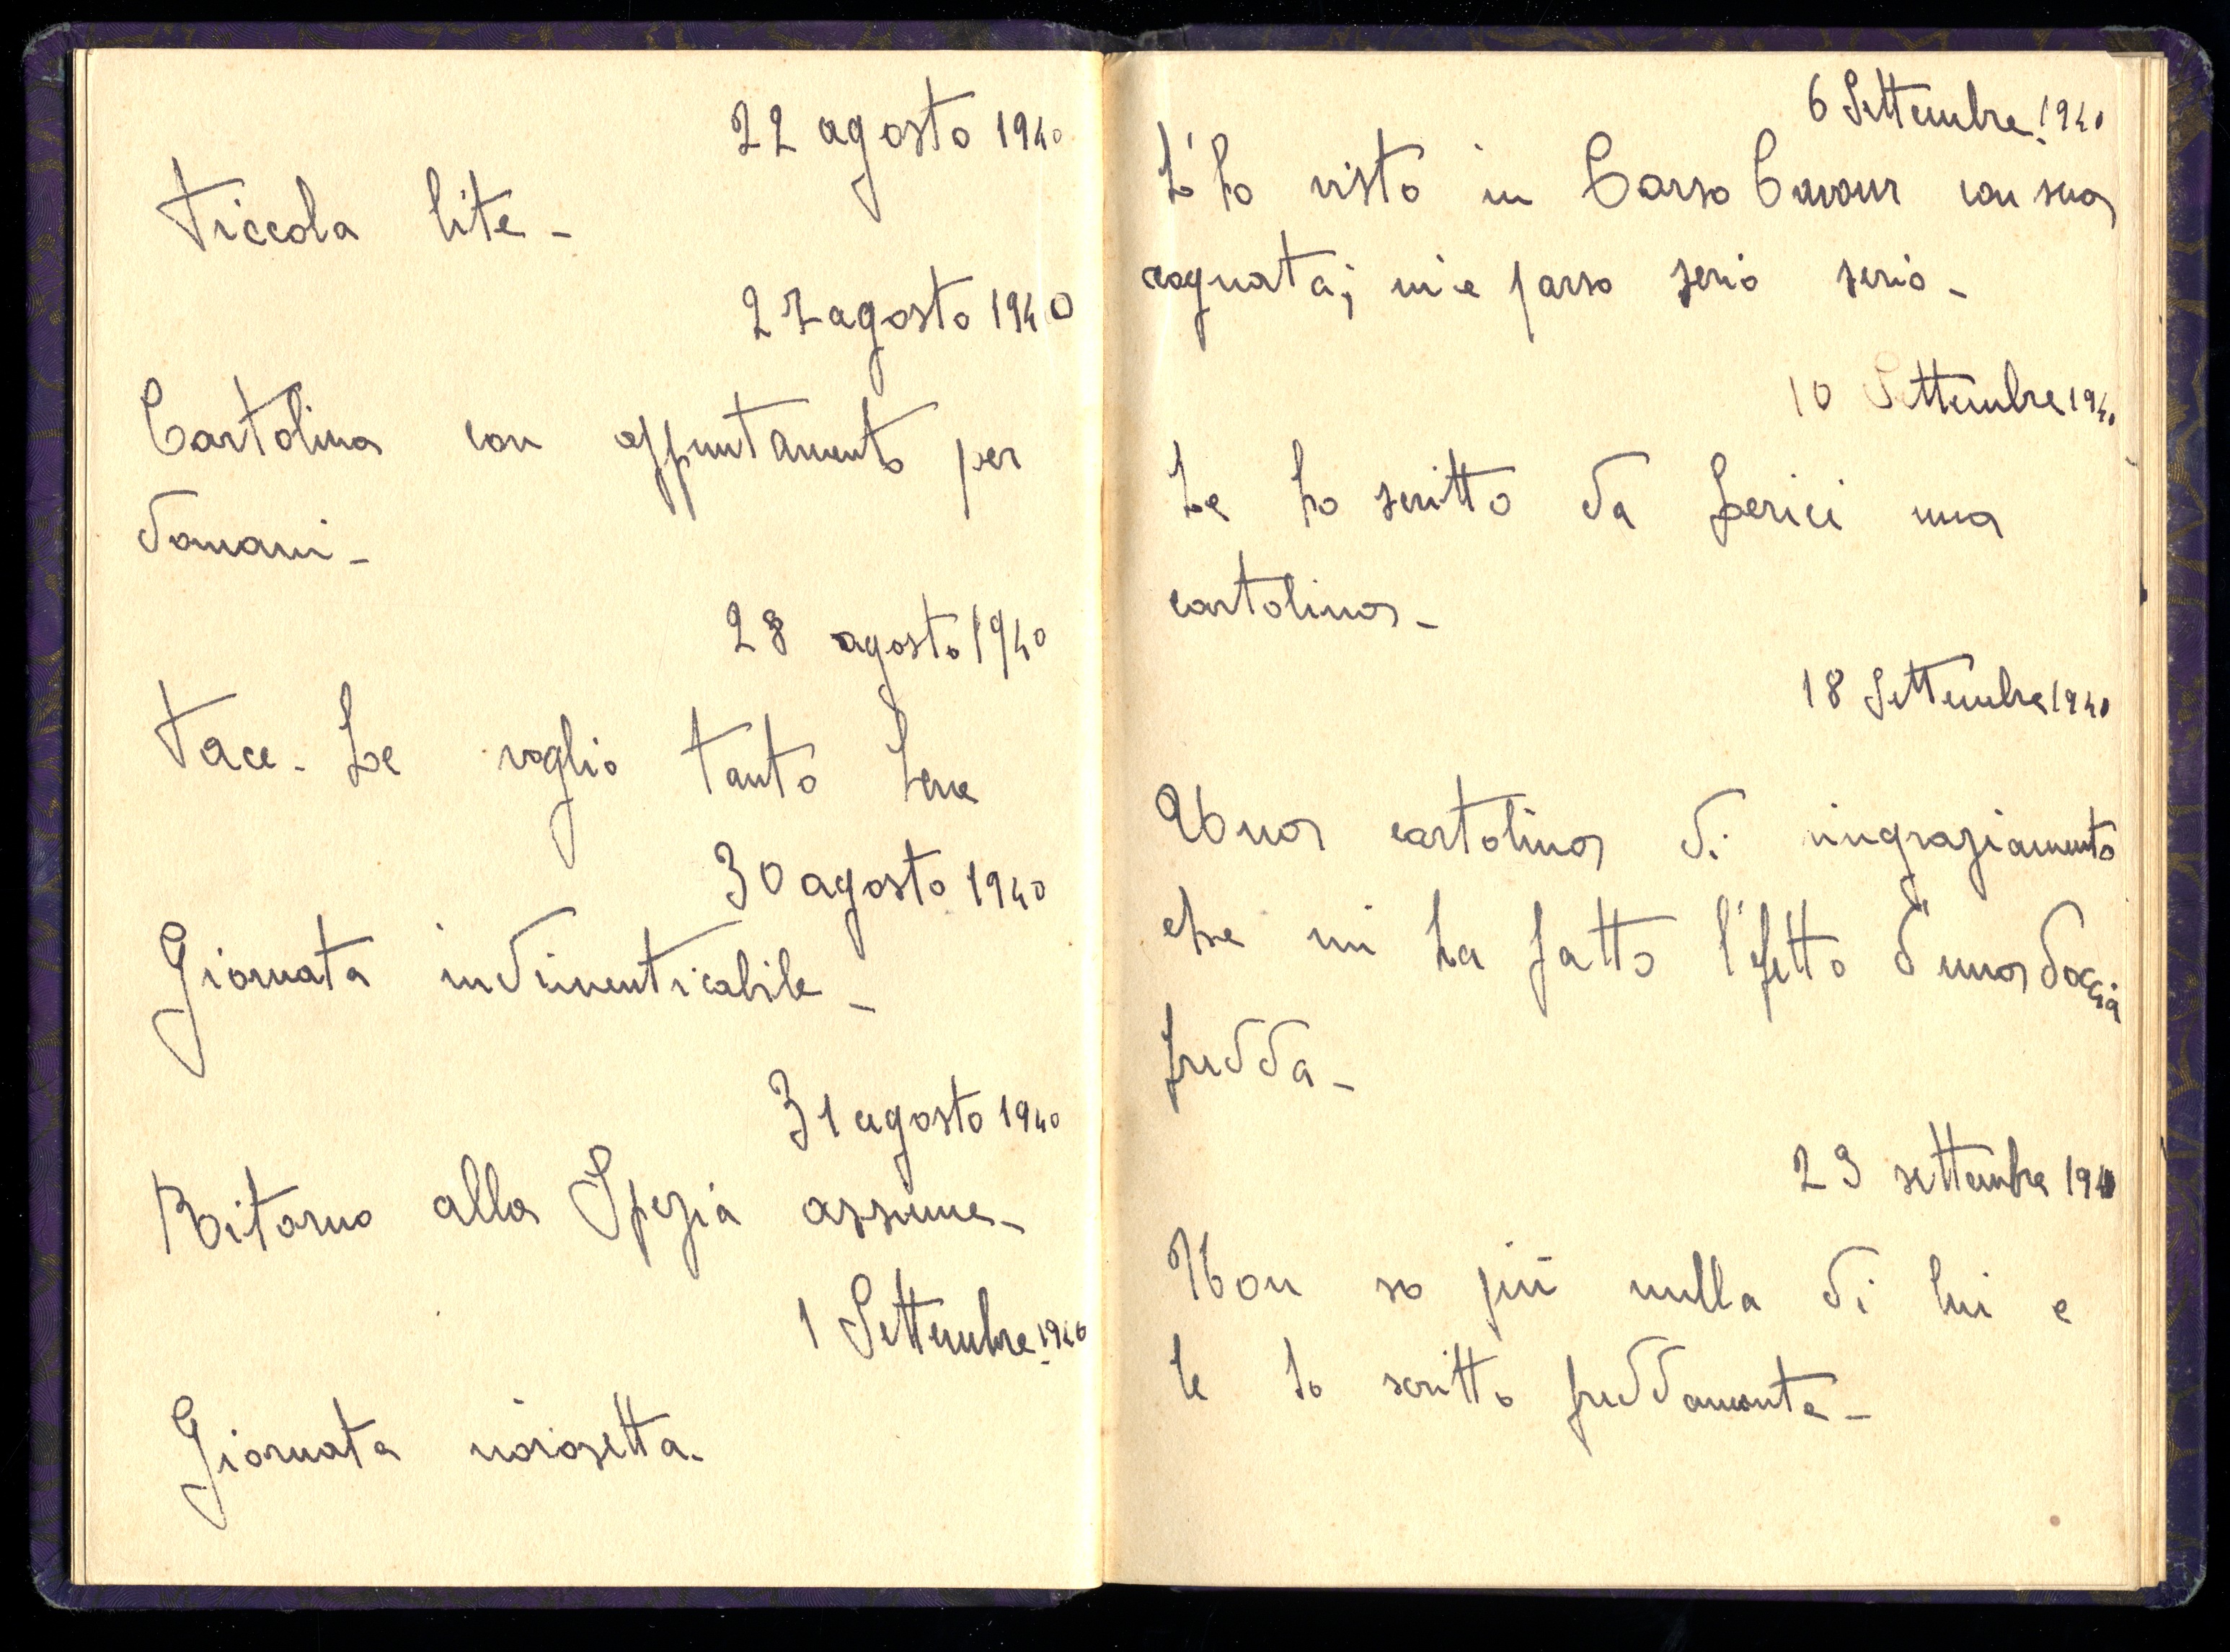 22 agosto 1940
Piccola lite -
27 agosto 1940
Cartolina con appuntamento per
domani -
28 agosto 1940
Pace - Le voglio tanto bene
30 agosto 1940
Giornata indimenticabile -
31 agosto 1940
Ritorno alla Spezia assieme -
1 Settembre 1940
Giornata noiosetta.
6 Settembre 1940
L'ho visto in Corso Cavour con sua
cognata; mi è parso serio serio -
10 Settembre 1940
Le ho scritto da Lerici una
cartolina -
18 Settembre 1940
Una cartolina di ringraziamento
che mi ha fatto l'effetto d'una doccia
fredda -
23 settembre 1940
Non so più nulla di lui e
le ho scritto freddamente -